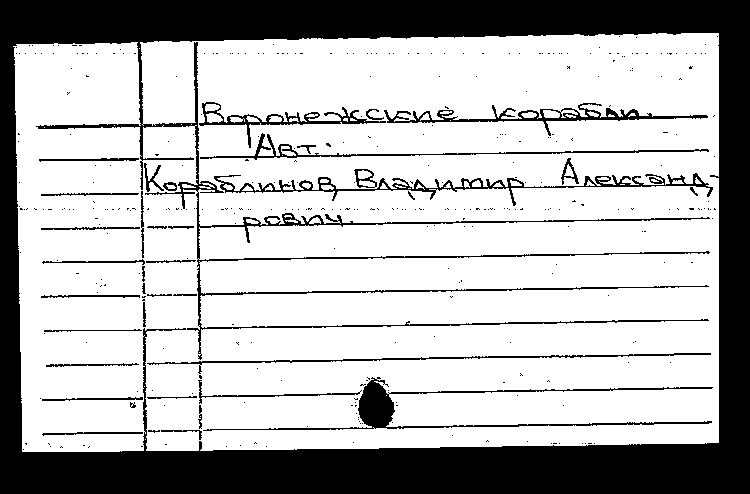 Воронежские корабли.
Авт.:
Кораблинов, Владимир Александ-
рович.